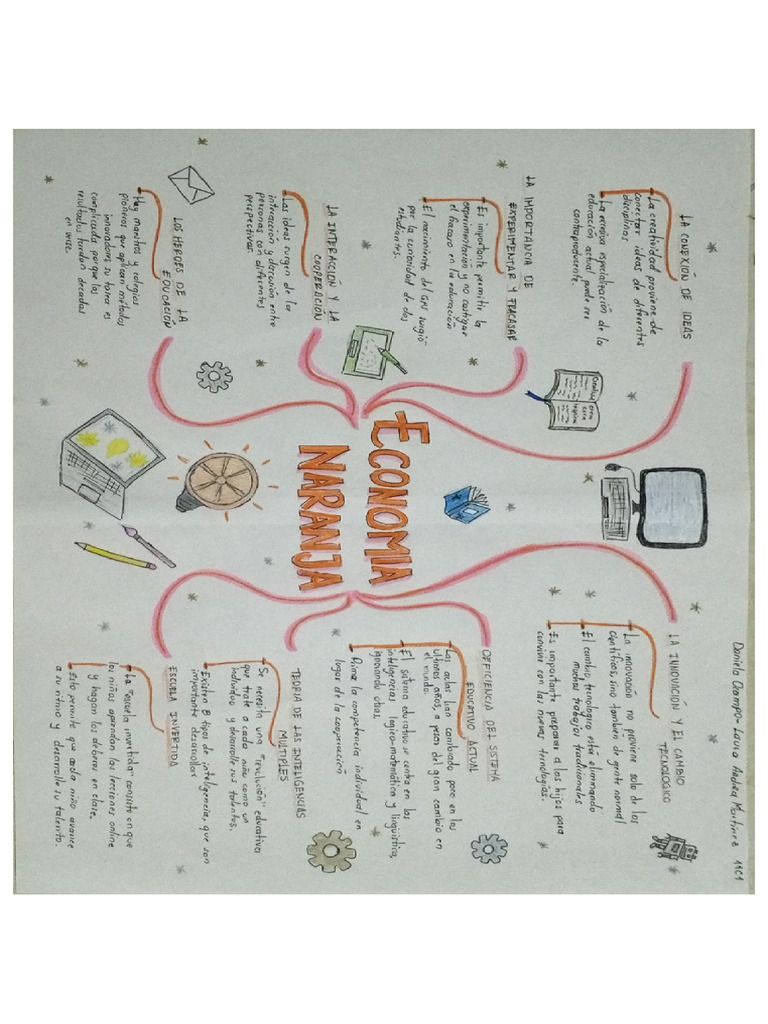 Daniela Ocampo - Laura Andrea Martínez 11C1
ECONOMIA
NARANJA
LA CONEXIÓN DE IDEAS
La creatividad proviene de
conectar ideas de diferentes
disciplinas
La excesiva especialización de la
educación actual puede ser
contraproducente.
LA IMPORTANCIA DE
EXPERIMENTAR Y FRACASAR
Es importante permitir la
experimentación y no castigar
el fracaso en la educación
El nacimiento del GPS surgió
por la curiosidad de dos
estudiantes.
LA INTERACCIÓN Y LA
COOPERACIÓN
Las ideas surgen de la
interacción y discusión entre
personas con diferentes
perspectivas.
LOS HEROES DE LA
EDUCACIÓN
Hay maestros y colegios
pioneros que aplican métodos
innovadores su tarea es
complicada porque los
resultados tardan decadas
en verse.
LA INNOVACIÓN Y EL CAMBIO
TECNOLOGICO
La innovación no proviene solo de los
cientificos, sino también de gente normal
El cambio tecnologico está eliminando
muchos trabajos tradicionales
Es importante preparar a los hijos para
convivir con las nuevas tecnologías.
DEFICIENCIA DEL SISTEMA
EDUCATIVO ACTUAL
Las aulas han cambiado poco en los
ultimos años, a pesar del gran cambio en
el mundo.
El sistema educativo se centra en las
inteligencias logico-matemática y lingüistica,
ignorando otras.
Prima la competencia individual en
lugar de la cooperación
TEORIA DE LAS INTELIGENCIAS
MULTIPLES
Se necesita una "revolución" educativa
que trate a cada niño como un
individuo y desarrolle sus talentos.
Existen 8 tipos de inteligencia, que son
importante desarrollar
ESCUELA INVERTIDA
La "escuela invertida" consiste en que
los niños aprendan las lecciones online
y hagan los deberes en clase.
Esto permite que cada niño avance
a su ritmo y desarrolle su talento.